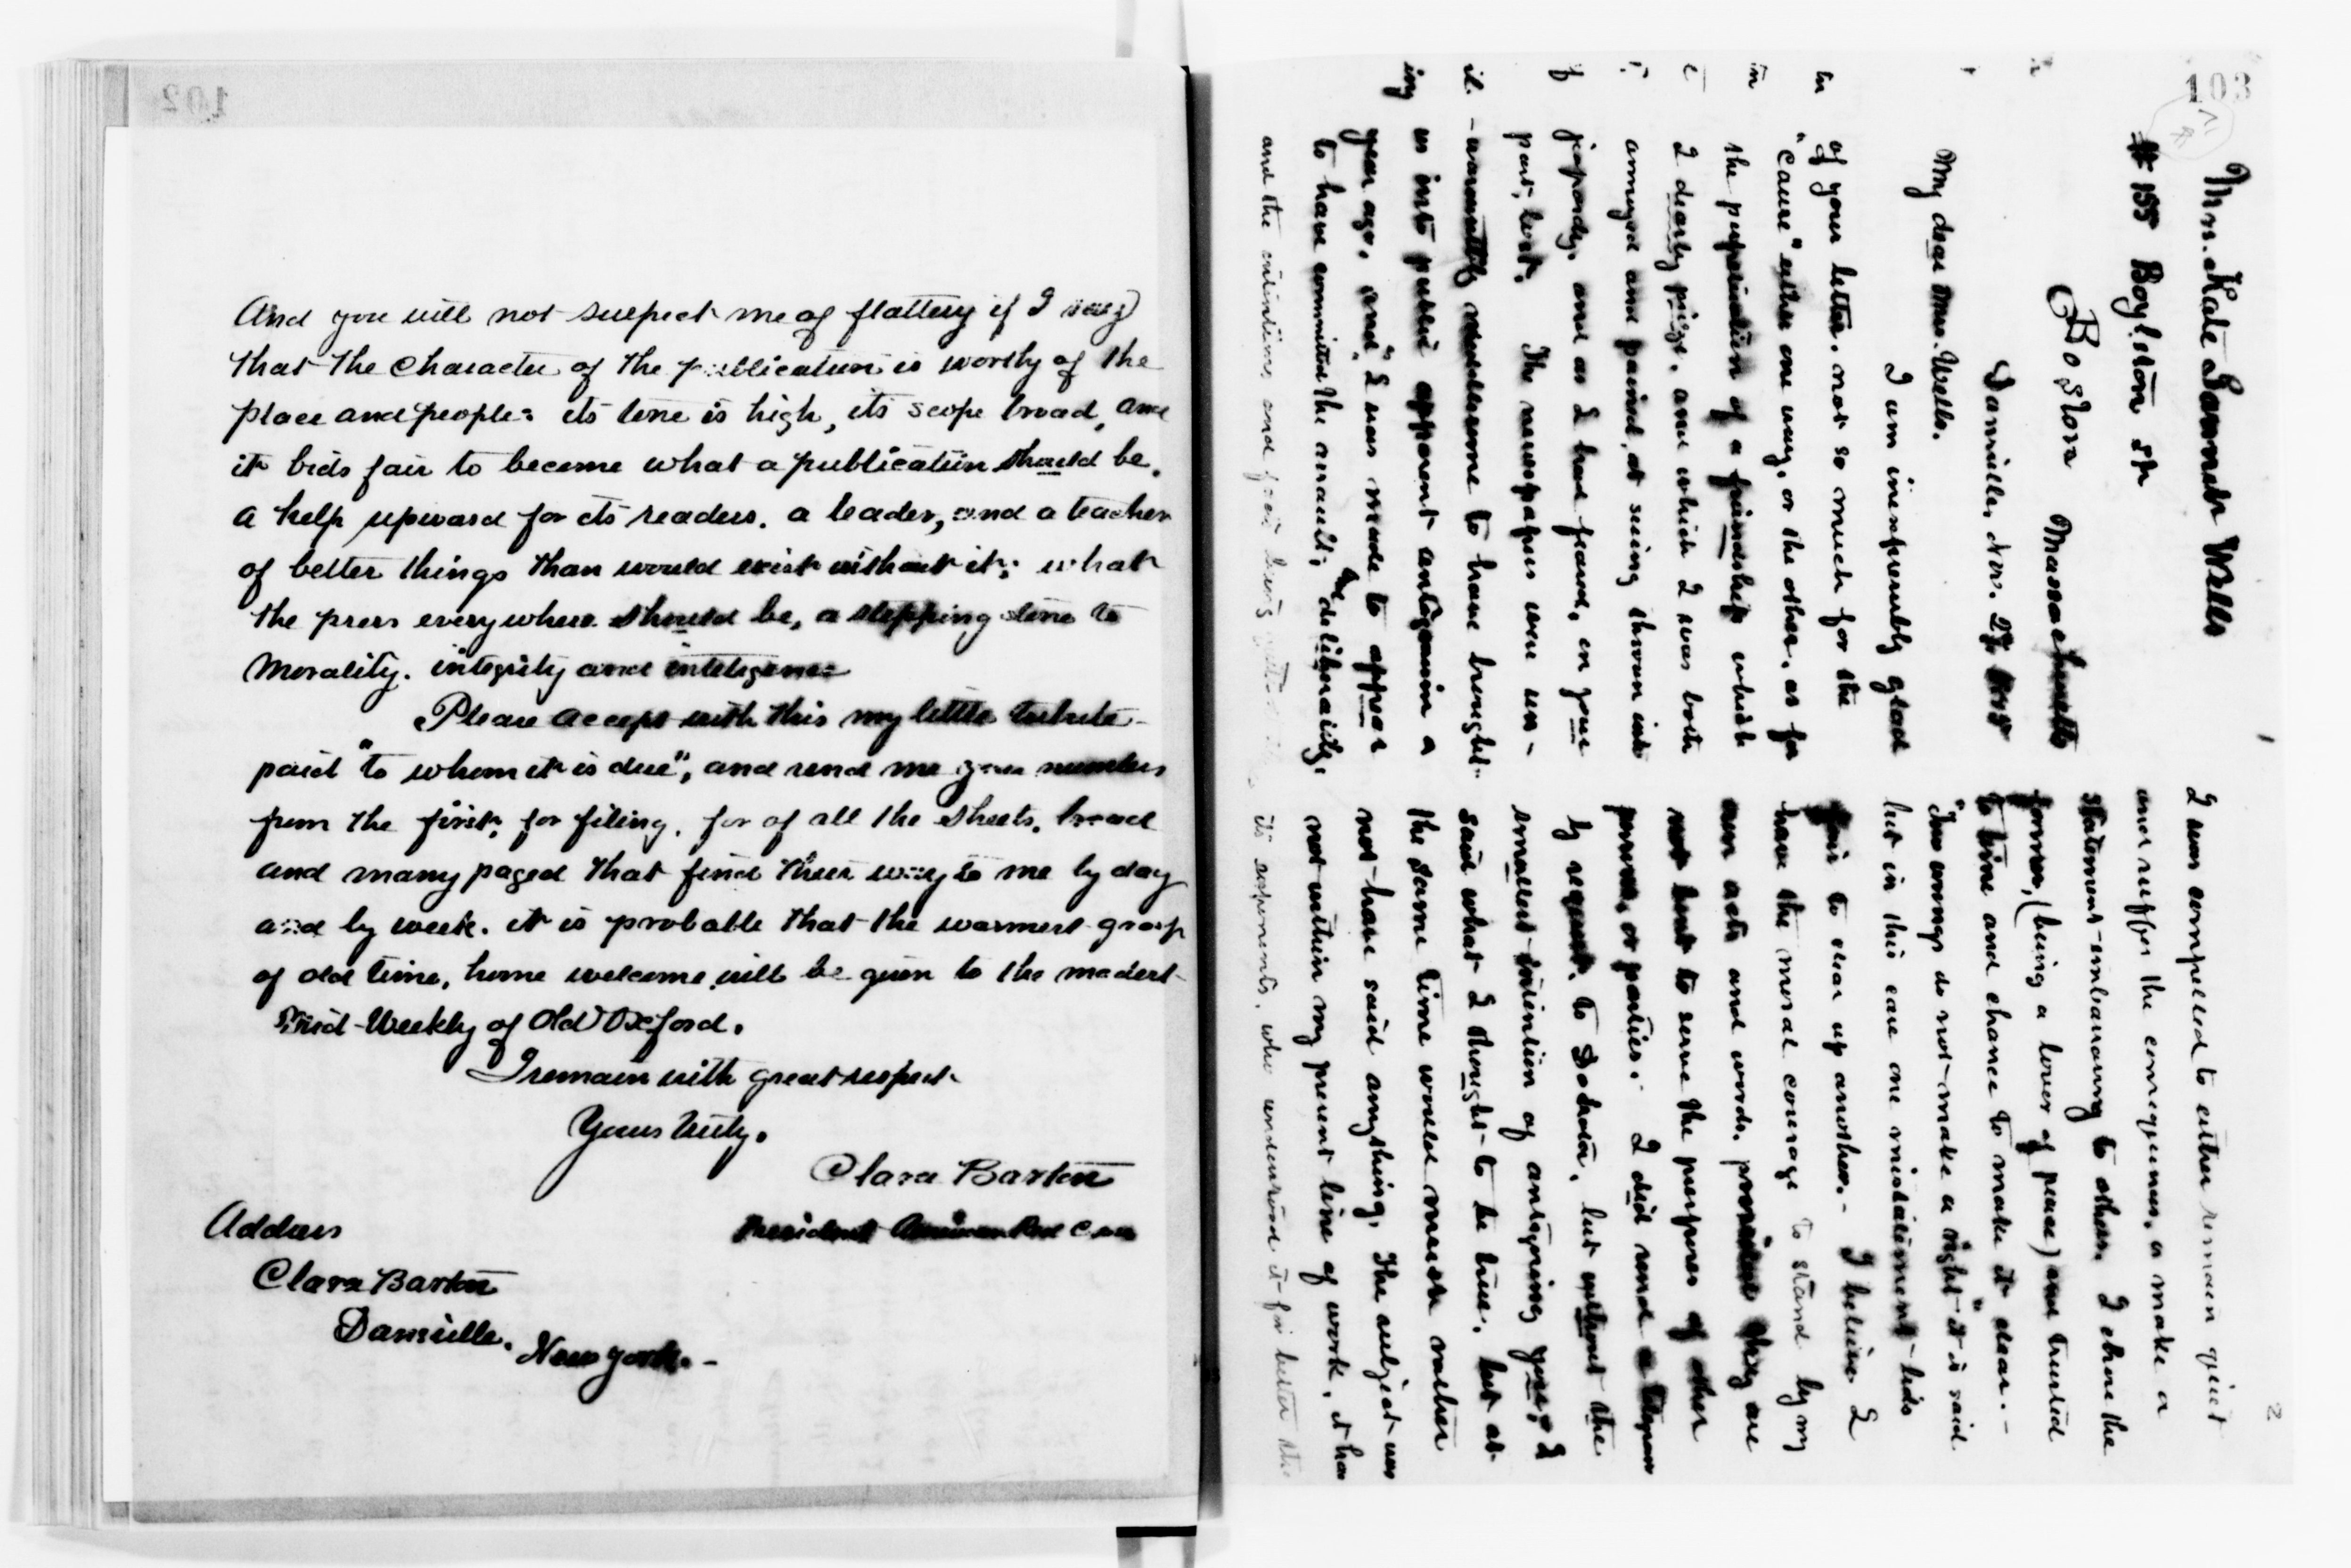 102
And you will not suspect me of flattery if I say
that the character of the publication is worthy of the
place and people: its tone is high, its scope broad, and
it bids fair to become what a publication should be.
a help upward for its readers. a leader, and a teacher
of better things than would exist without it; what
the press everywhere should be, a stepping stone to
morality. integrity and inteligence
Please accept with this my little tribute
paid "to whom it is due", and send me your numbers
from the first, for filing. for of all the sheets, broad
and many paged that find their way to me by day
and by week. it is probable that the warmest grasp
of old time, home welcome will be given to the modest
Mid-Weekly of Old Oxford.
I remain with great respect
Yours truly.
Clara Barton
President American Red Cross
Address
Clara Barton
Dansville.
New York. -
103
Mrs. Kate Gannett Wells
# 155 Boylston St
Boston Massachusetts
Dansville, Nov.
My dear Mrs. Wells.
I am inexpressibly glad
of your letter. not so much for the
"Cause" either one way, or the other, as for
the perpetuation of a friendship which
I dearly prize, and which I was both
annoyed and pained, at seeing thrown into
jeopardy, and as I had feared, on your
part, lost. The newspapers were un-
-warrantably meddlesome to have brought
us into public apparent antagonism a
year ago, and "I was made to appear
to have committed the assault, and deliberately.
and the
2
I was compelled to either remain quiet
and suffer the consequences, or make a
statement embarrassing to others. I chose the
former, (being a lover of peace) and trusted
to time and chance to make it clear. -
"Two wrongs do not make a right" it is said
but in this case one misstatement bids
fair to clear up another. - I believe I
have the moral courage to stand by my
own acts and words, provided they are
not bent to serve the purposes of other
persons, or parties. I did send a telegram
by request, to but without the
smallest intention of antagonizing you, I
said what I thought to be true, but at
the same time would much rather
not have said anything. The subject was
not within my present line of work, it has
its exponents, who understand it far better than